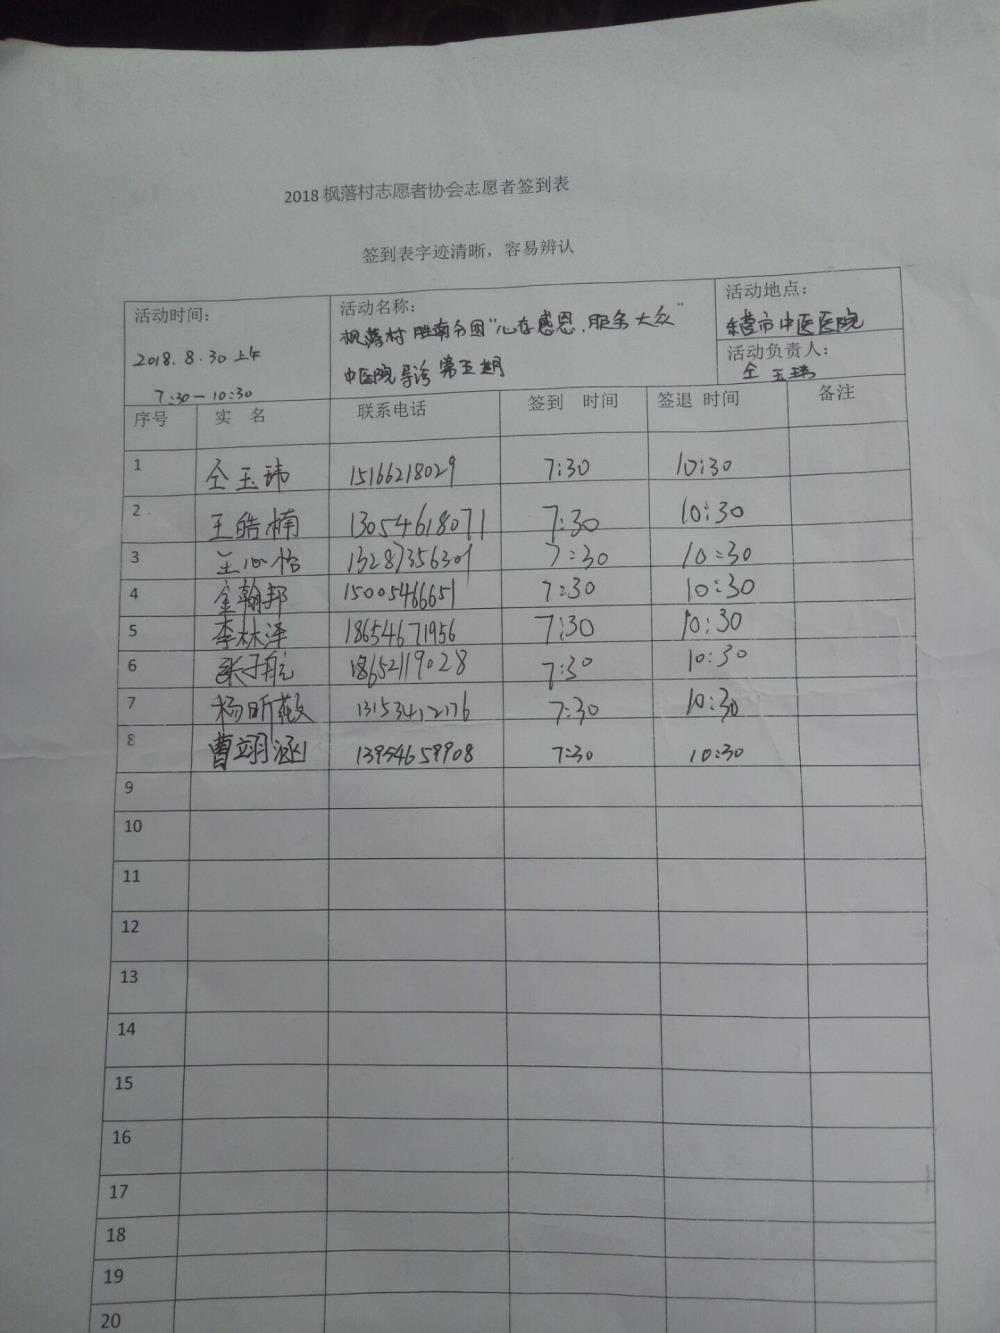 2018 枫落村志愿者协会志愿者签到表
签到表字迹清晰，容易辨认
活动时间： 活动名称： 活动地点：
2018.8.30 上午 枫落村 胜南分团"心存感恩、服务大众" 东营市中医医院
7:30－10:30 中医院导诊 第五期 活动负责人：
仝玉玮
序号 实 名 联系电话 签到 时间 签退 时间 备注
1 仝玉玮 15166218029 7:30 10:30
2 王皓楠 13054618071 7:30 10:30
3 王心怡 13287356301 7:30 10:30
4 金翰邦 15005466651 7:30 10:30
5 李林泽 18654671956 7:30 10:30
6 张子航 18652119028 7:30 10:30
7 杨昕薇 13153412176 7:30 10:30
8 曹翊涵 13954659908 7:30 10:30
9
10
11
12
13
14
15
16
17
18
19
20